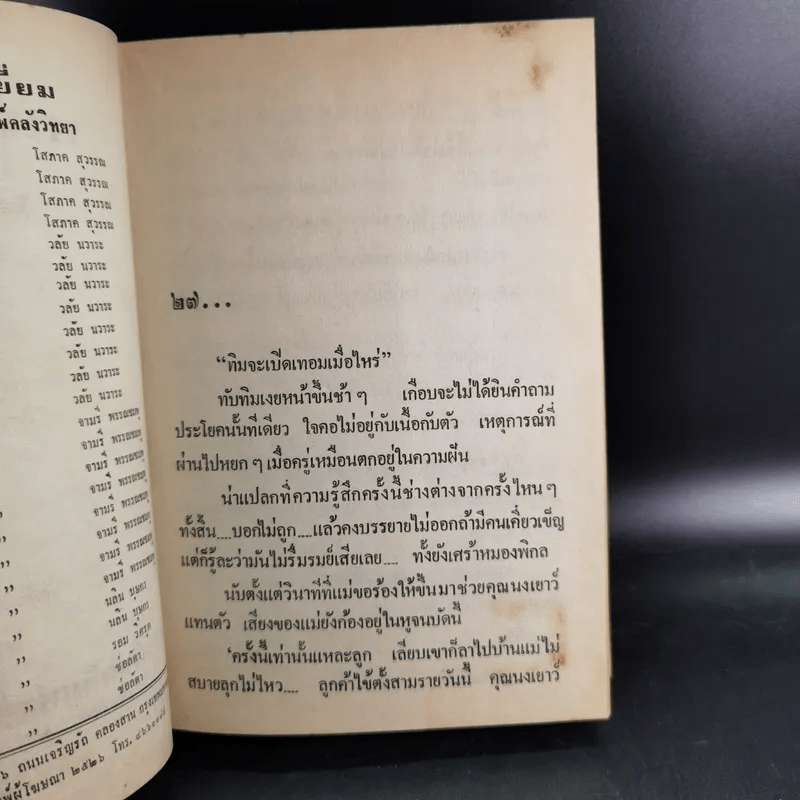 ยี่ยม
พ์คลังวิทยา
โสภาค สุวรรณ
โสภาค สุวรรณ
โสภาค สุวรรณ
โสภาค สุวรรณ
วลัย นวาระ
วลัย นวาระ
วลัย นวาระ
วลัย นวาระ
วลัย นวาระ
วลัย นวาระ
วลัย นวาระ
วลัย นวาระ
จามรี พรรณชมพู
จามรี พรรณชมพู
จามรี พรรณชมพู
จามรี พรรณชมพู
จามรี พรรณชมพู
จามรี พรรณชมพู
จามรี พรรณชมพู
จามรี พรรณชมพู
นลิน บุษกร
นลิน บุษกร
รอม วิศรุต
ช่อลัดา
ช่อลัดา
๖ ถนนเจริญรัถ คลองสาน
พ์ผู้โฆษณา ๒๕๒๖ โทร.
๒๗...
“ทิมจะเปิดเทอมเมื่อไหร่”
ทับทิมเงยหน้าขึ้นช้า ๆ เกือบจะไม่ได้ยินคำถาม
ประโยคนั้นทีเดียว ใจคอไม่อยู่กับเนื้อกับตัว เหตุการณ์ที่
ผ่านไปหยก ๆ เมื่อครู่เหมือนตกอยู่ในความฝัน
น่าแปลกที่ความรู้สึกครั้งนี้ช่างต่างจากครั้งไหน ๆ
ทั้งสิ้น....บอกไม่ถูก....แล้วคงบรรยายไม่ออกถ้ามีคนเคี่ยวเข็ญ
แต่ก็รู้ละว่ามันไม่รื่นรมย์เสียเลย.... ทั้งยังเศร้าหมองพิกล
นับตั้งแต่วินาทีที่แม่ขอร้องให้ขึ้นมาช่วยคุณนงเยาว์
แทนตัว เสียงของแม่ยังก้องอยู่ในหูจนบัดนี้
‘ครั้งนี้เท่านั้นแหละลูก เลี่ยบเขาก็ลาไปบ้านแม่ไม่
สบายลุกไม่ไหว.... ลูกค้าไข้ตั้งสามรายวันนี้ คุณนงเยาว์